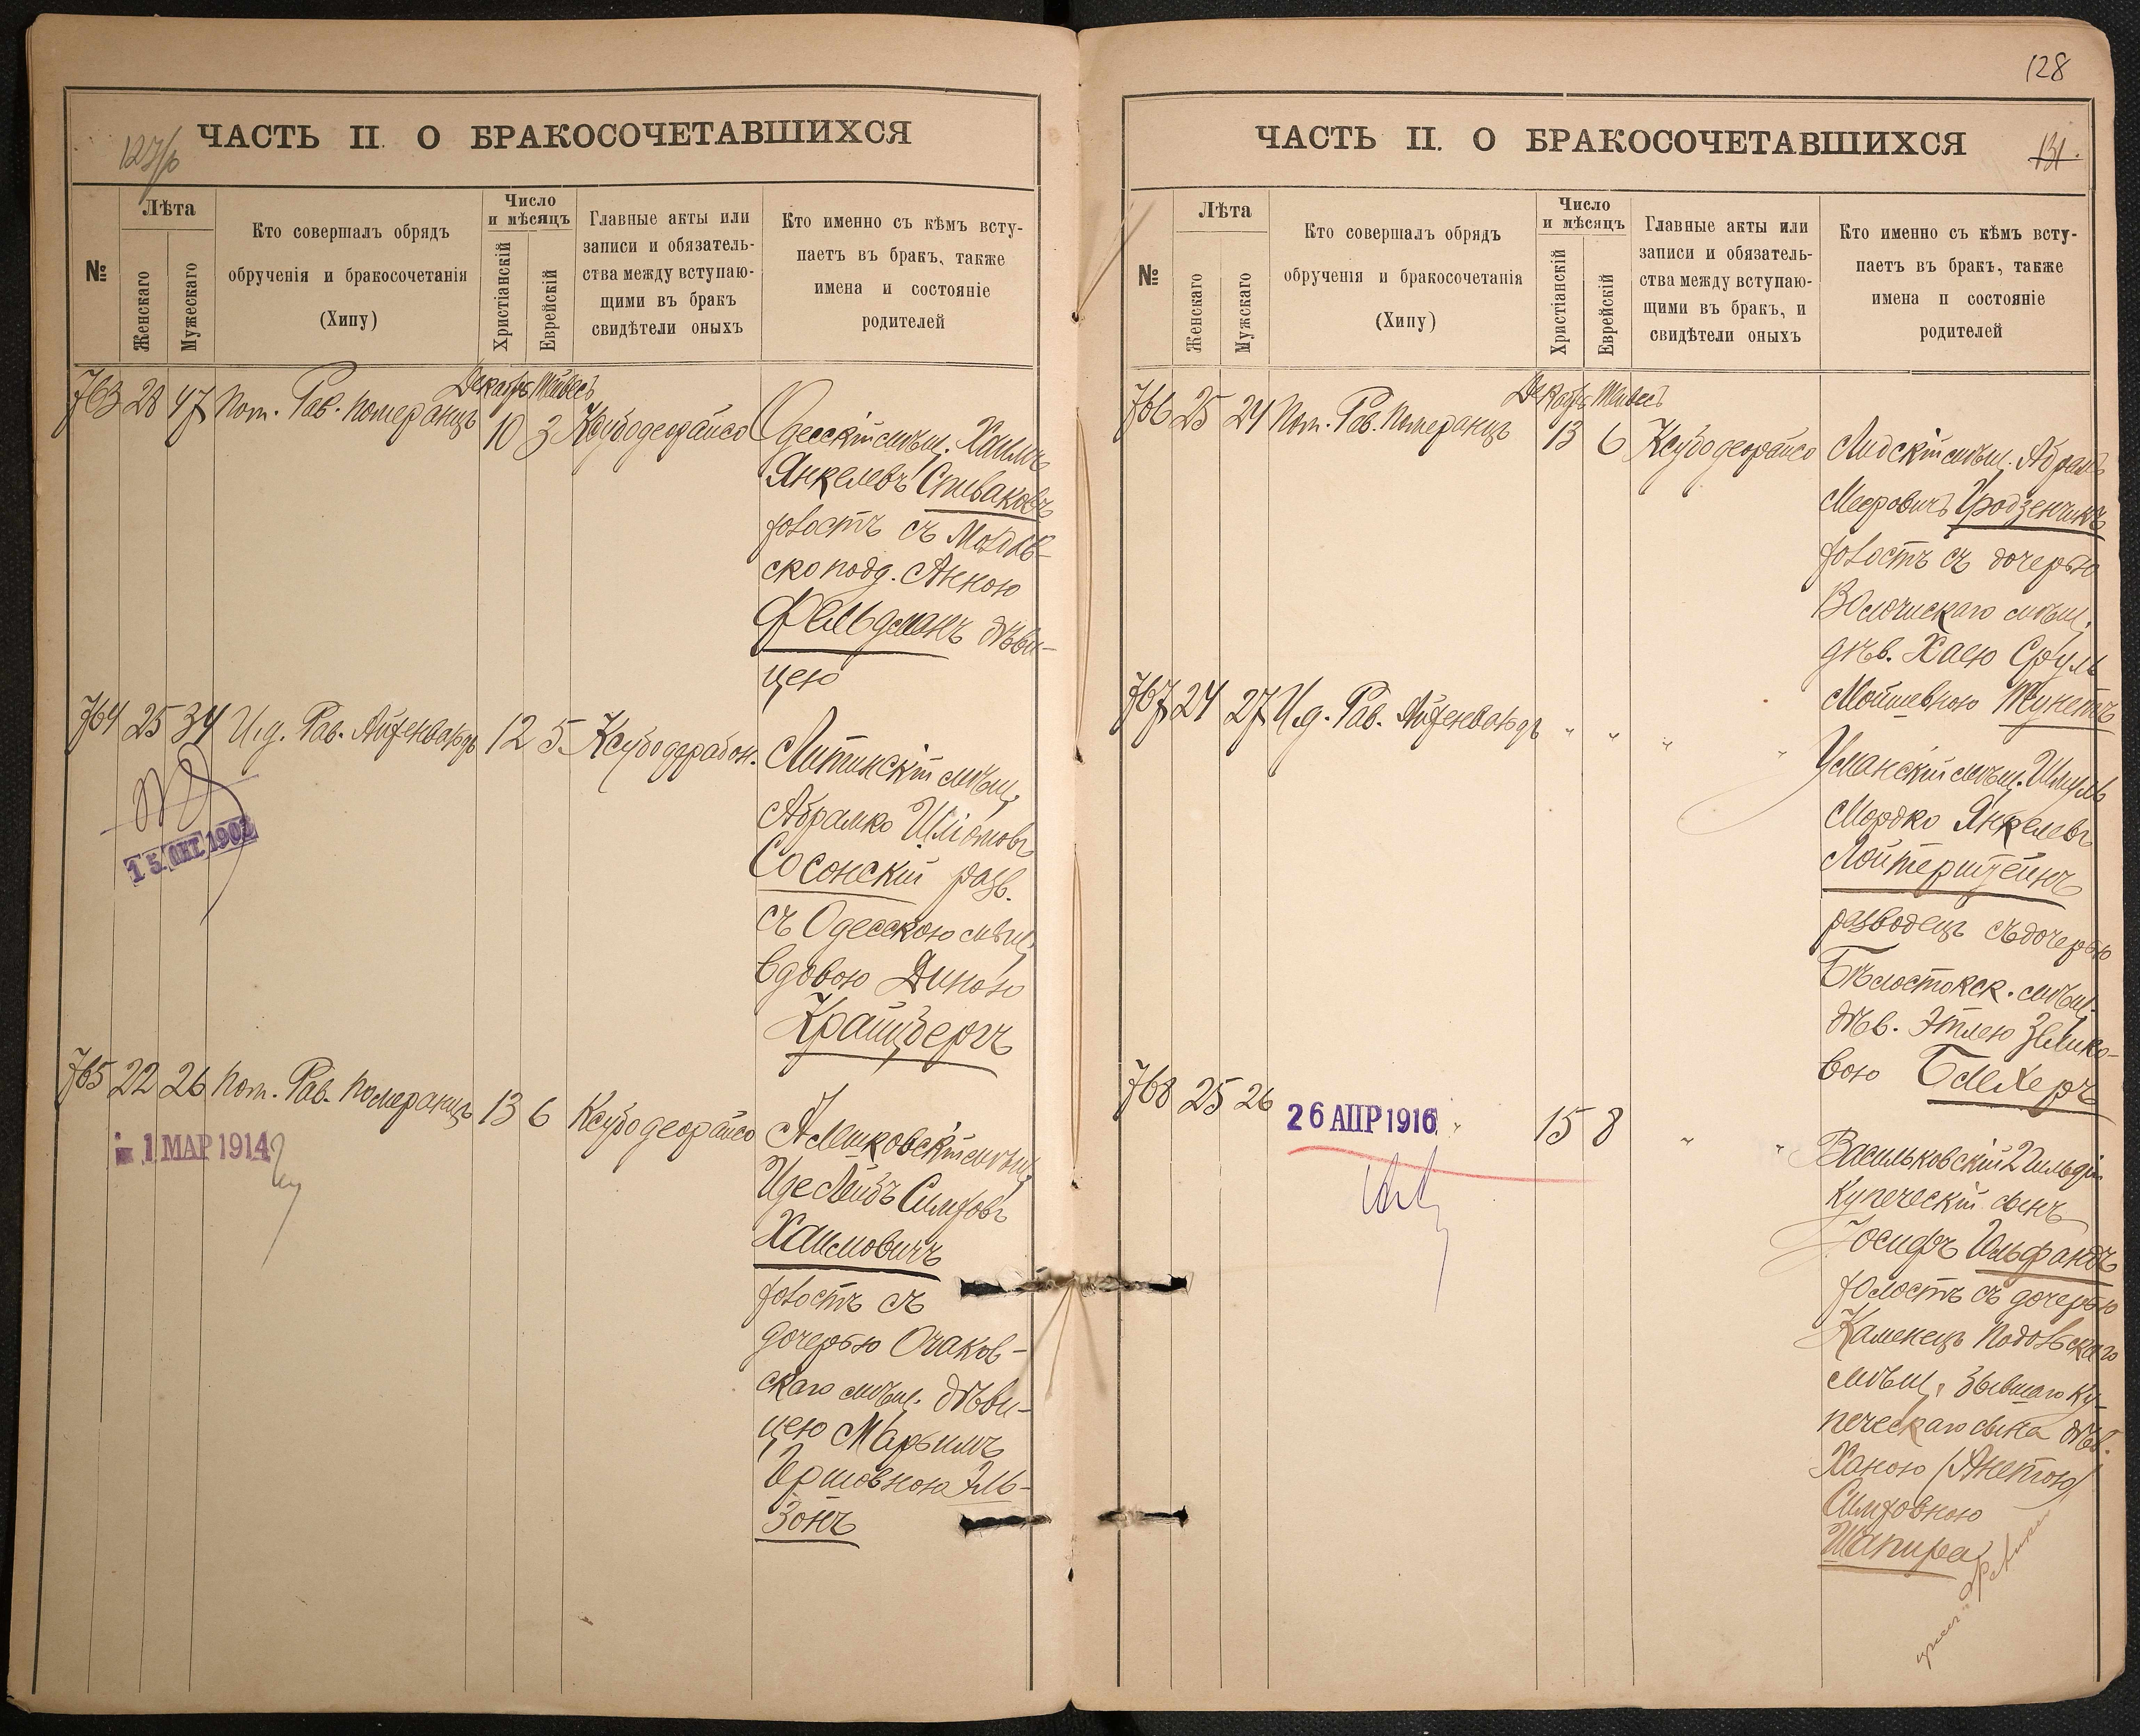 128
ЧАСТЬ II. О БРАКОСОЧЕТАВШИХСЯ
№
Лѣта
Женскаго
Мужескаго
Кто совершалъ обрядъ
обрученія и бракосочетанія
(Хипу)
Число
и мѣсяцъ
Христіанскій
Еврейскій
Главные акты или
записи и обязатель-
ства между вступаю-
щими въ бракъ
свидѣтели оныхъ
Кто именно съ кѣмъ всту-
паетъ въ бракъ, также
имена и состояніе
родителей
Декабрь Тейвесъ
763 28 47 Пом. Рав. Померанцъ 10 3 Ксубо деорайсо
Одесскій мѣщ. Хаимъ
Янкелевъ Спиваковъ
холостъ съ Молдав-
ско подд. Анною
Фельдманъ дѣви-
цею
764 25 34 И.д. Рав. Айзенвардъ 12 5 Ксубо дерабон.
15 ОКТ. 1902
Литинскій мѣщ.
Абрамко
Сосонскій разв.
съ Одесскою мѣщ.
вдовою Диною
Крайцбергъ
765 22 26 Пом. Рав. Померанцъ 13 6 Ксубо деорайсо
1 МАР 1914
мѣщ.
Симховъ
Хаимовичъ
холостъ съ
дочерью Очаков-
скаго мѣщ. дѣви-
цею Марьимъ
Гершовною Эль-
зонъ
ЧАСТЬ II. О БРАКОСОЧЕТАВШИХСЯ
131.
№
Лѣта
Женскаго
Мужскаго
Кто совершалъ обрядъ
обрученія и бракосочетанія
(Хипу)
Число
и мѣсяцъ
Христіанскій
Еврейскій
Главные акты или
записи и обязатель-
ства между вступаю-
щими въ бракъ, и
свидѣтели оныхъ
Кто именно съ кѣмъ всту-
паетъ въ бракъ, также
имена и состояніе
родителей
Декабрь Тейвесъ
766 25 24 Пом. Рав. Померанцъ 13 6 Ксубо деорайсо
Лидскій мѣщ. Абрамъ
Мееровичъ Гродзенчикъ
холостъ съ дочерью
мѣщ.
дѣв. Хаею Сруль
Мойшевною
767 24 27 И.д. Рав. Айзенвардъ " " " "
Уманскій мѣщ. Шмуль
Мордко Янкелевъ
Лойтерштейнъ
разводецъ съ дочерью
Бѣлостокск. мѣщ.
дѣв. Этлею Зелико-
вою Блехеръ
768 25 26 " 15 8 " "
26 АПР 1916
Васильковскій 2 гильдіи
купеческій сынъ
Іосифъ Гельфандъ
холостъ съ дочерью
Каменецъ Подольскаго
мѣщ. бывшаго ку-
печескаго сына дѣв.
Ханою (Анетою)
Симховною
Шапира